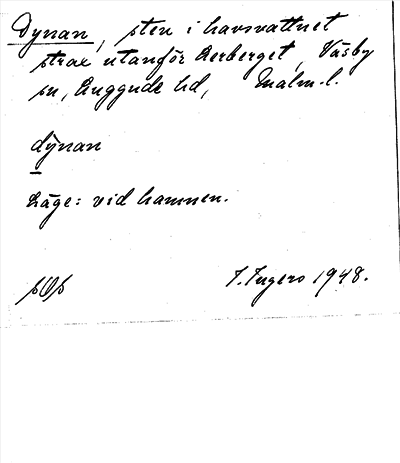 Dynan, sten i havsvattnet
strax utanför Lerberget, Väsby
sn, Luggude hd, Malm. l.
dỳnan
Läge: vid hamnen.
I. Ingers 1948.